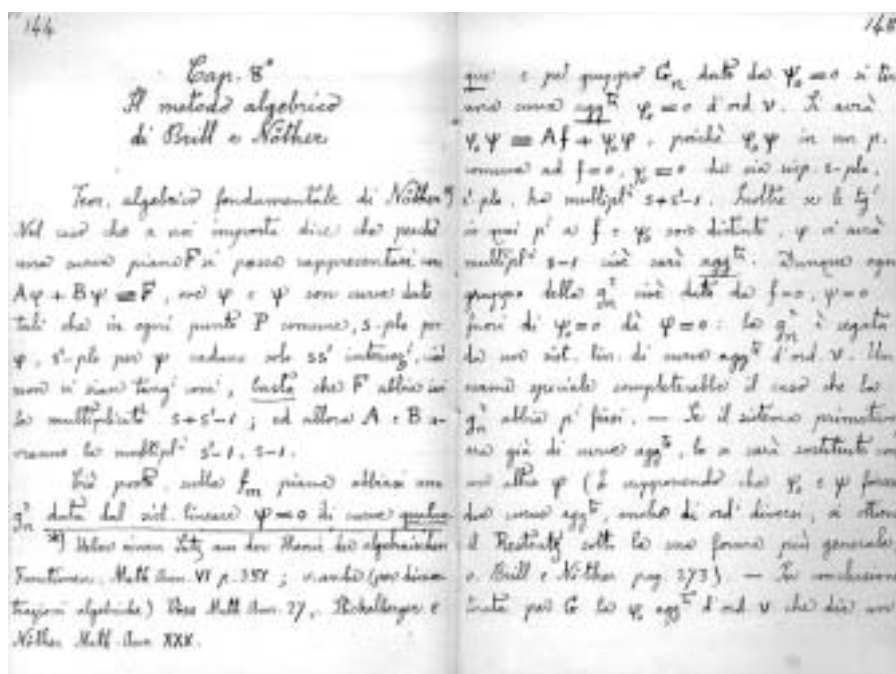 144
Cap. 8°
Il metodo algebrico
di Brill e Nöther
Teor. algebrico fondamentale di Nöther *)
Nel caso che a noi importa dice che perchè
una curva piana F si possa rappresentare con
Aφ + Bψ ≡ F, ove φ e ψ son curve date
tali che in ogni punto P comune, s-plo per
φ, s'-plo per ψ cadano solo ss' intersez', cioè
non vi sian tang' comi, basta che F abbia in
la multiplicità s+s'-1; ed allora A e B a-
vranno la multipl. s'-1, s-1.
Ciò posto, sulla f_m piana abbiasi una
g_n data dal sist. lineare ψ=0 di curve qualun-
*) Ueber einen Satz aus der Theorie der algebraischen
Functionen. Math Ann. VI p. 351; v. anche (per dimos-
trazioni algebriche) Voss Math Ann. 27, Stickelberger e
Nöther Math. Ann XXX.
145
que e pel gruppo G_n dato da ψ₀=0 si
una curva agg^ta φ₀=0 d'ord ν. Si avrà
φ₀ψ ≡ Af + ψ₀φ, poichè φ₀ψ in un p.
comune ad f=0, ψ₀=0 che sia risp. s-plo,
s'-plo, ha multipl. s+s'-1. Inoltre se le tg'
in quei p' a f e ψ₀ sono distinte, φ vi avrà
multipl. s-1 cioè sarà agg^ta. Dunque ogni
gruppo della g_n cioè dato da f=0, ψ=0
fuori di ψ₀=0 dà φ=0: la g_n è segata
da un sist. lin. di curve agg^te d'ord. ν. Un
esame speciale completerebbe il caso che la
g_n abbia p' fissi. — Se il sistema primitivo
era già di curve agg^te, lo si sarà sostituito con
un altro φ (E supponendo che φ₀ e ψ fossero
due curve agg^te, anche di ord' diversi, si ottiene
il Restsatz sotto la sua forma più generale
v. Brill e Nöther pag. 273). — In conclusione
tirata per G la φ₀ agg^ta d'ord ν che dia un